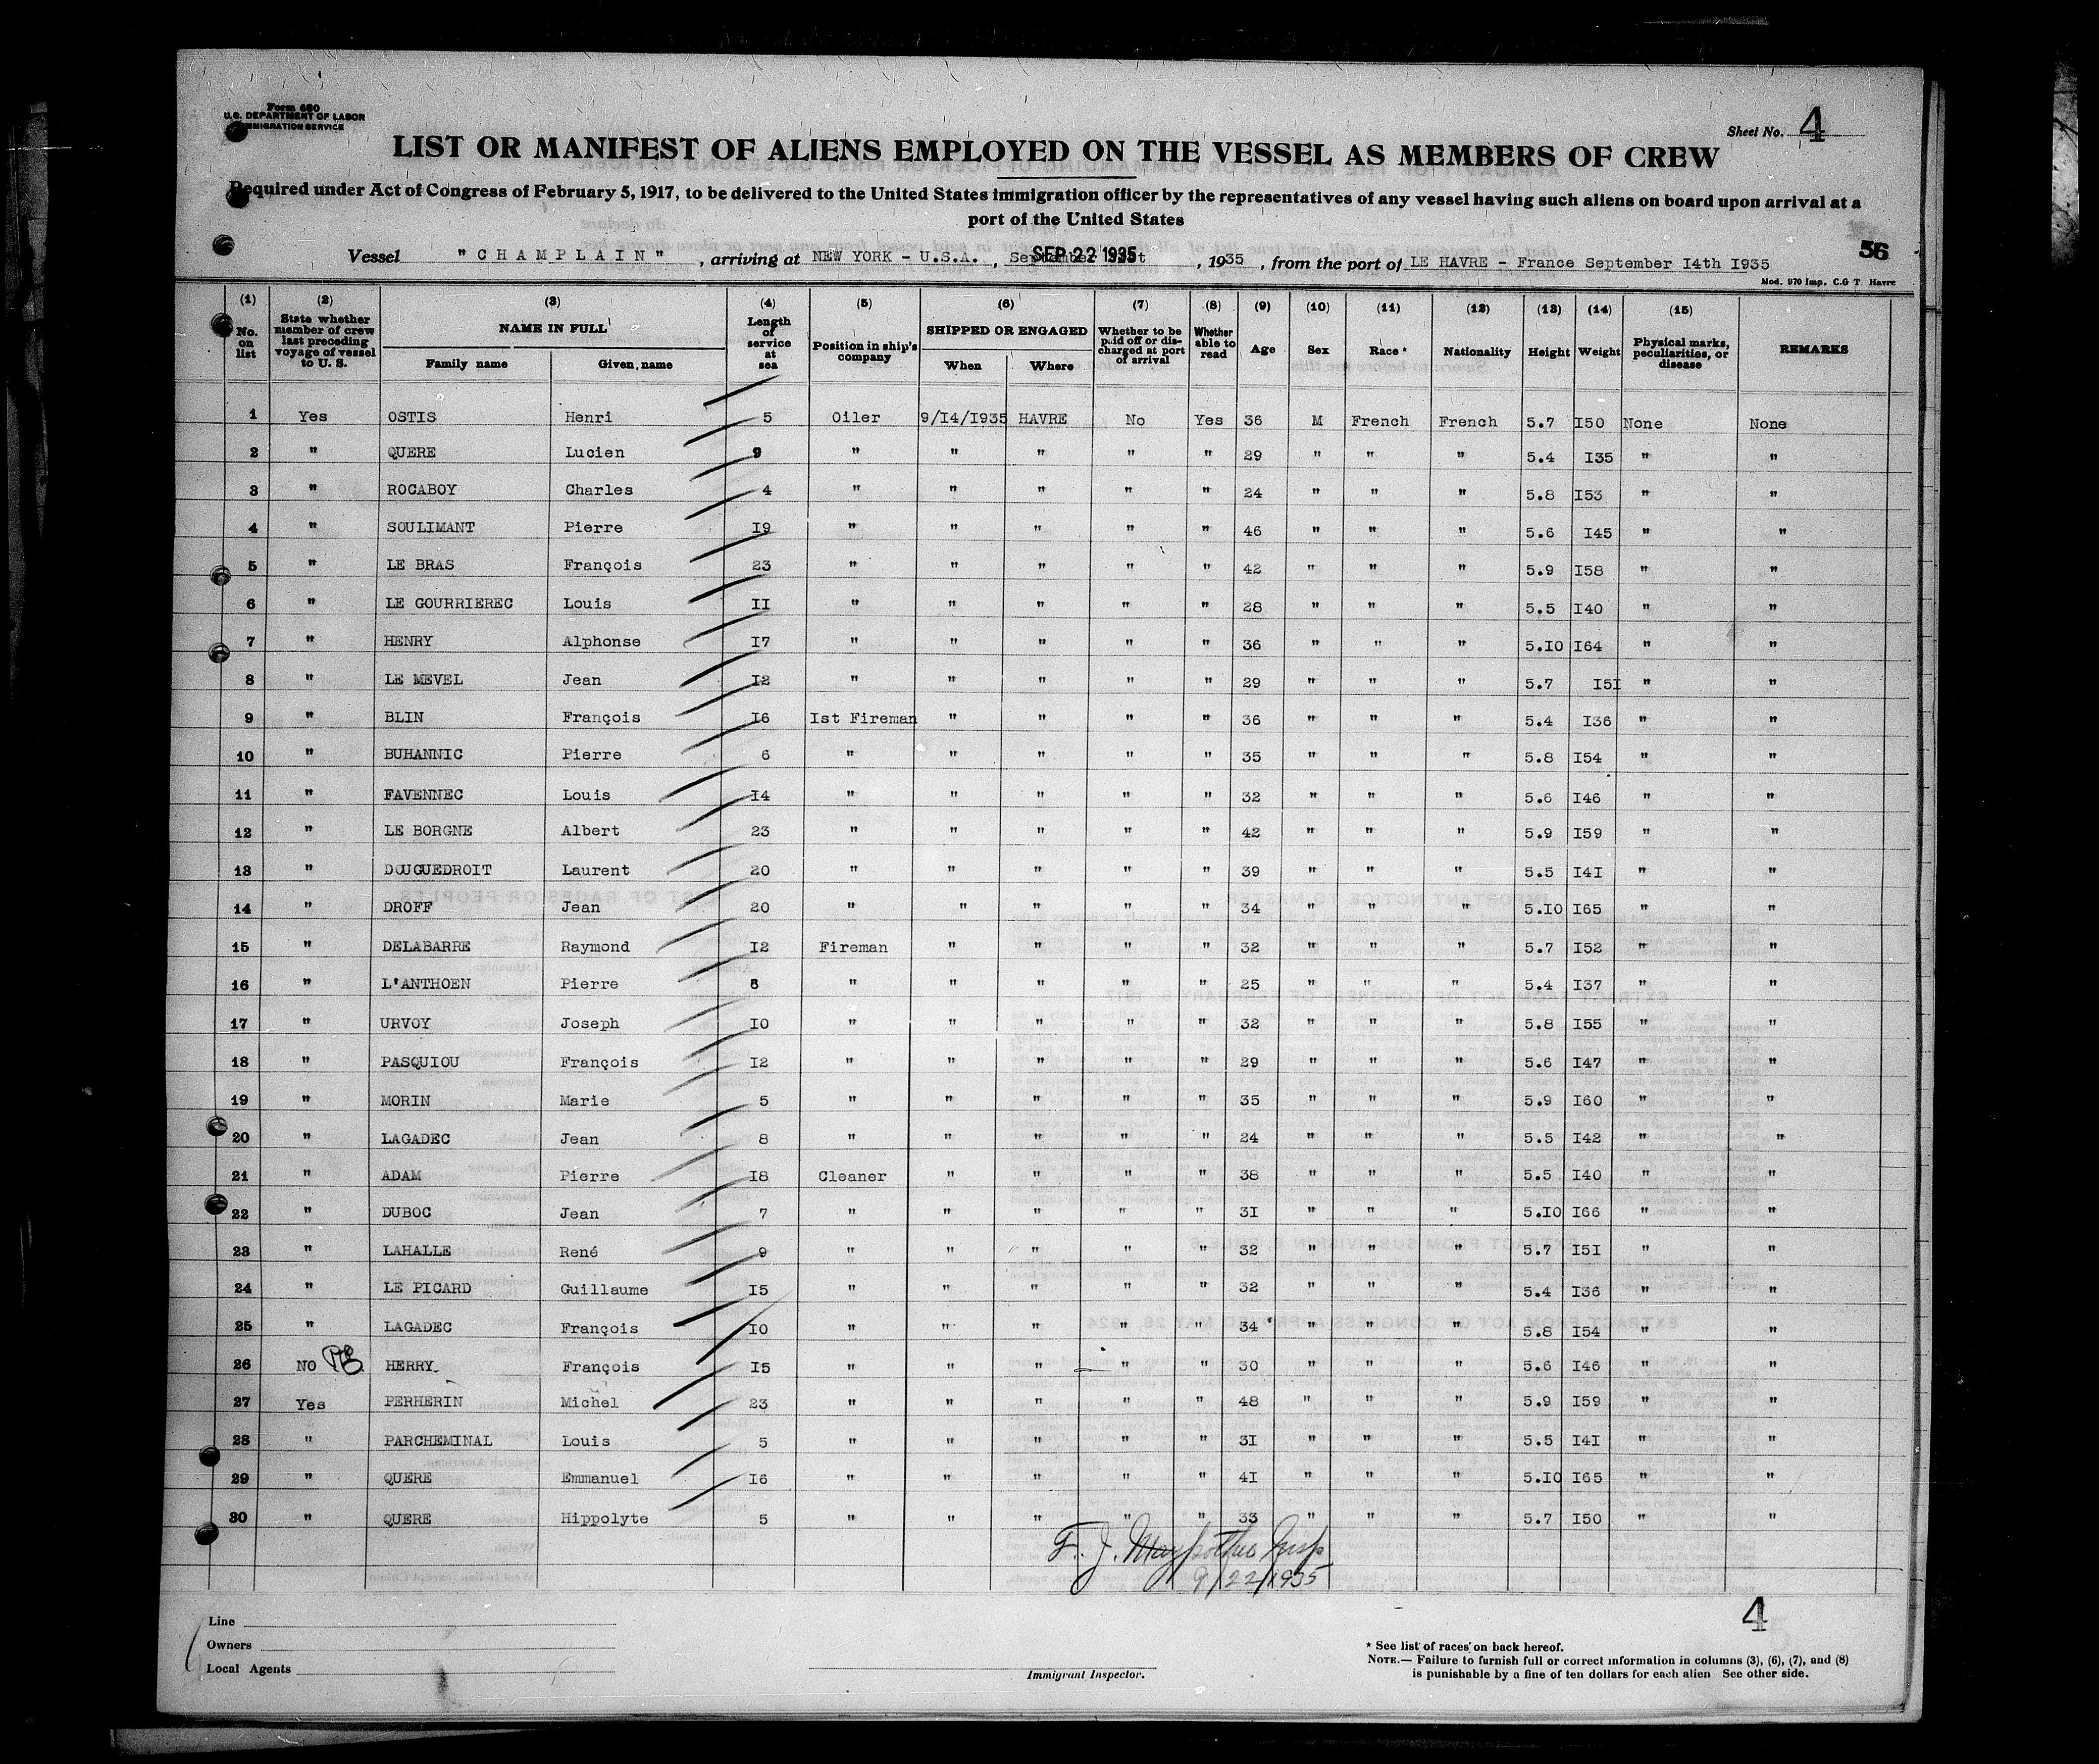 Form 680
U.S. DEPARTMENT OF LABOR
IMMIGRATION SERVICE
Sheet No. 4
LIST OR MANIFEST OF ALIENS EMPLOYED ON THE VESSEL AS MEMBERS OF CREW
Required under Act of Congress of February 5, 1917, to be delivered to the United States immigration officer by the representatives of any vessel having such aliens on board upon arrival at a
port of the United States
56
Vessel "CHAMPLAIN", arriving at NEW YORK - U.S.A., SEP 22 1935, 1935, from the port of LE HAVRE - France September I4th I935
Mod. 970 Imp. C.G T Havre
(1) No. on list (2) State whether member of crew last preceding voyage of vessel to U. S. (3) NAME IN FULL Family name Given name (4) Length of service at sea (5) Position in ship's company (6) SHIPPED OR ENGAGED When Where (7) Whether to be paid off or discharged at port of arrival (8) Whether able to read (9) Age (10) Sex (11) Race * (12) Nationality (13) Height (14) Weight (15) Physical marks, peculiarities, or disease REMARKS
1 Yes OSTIS Henri 5 Oiler 9/I4/I935 HAVRE No Yes 36 M French French 5.7 I50 None None
2 " QUERE Lucien 9 " " " " " 29 " " " 5.4 I35 " "
3 " ROCABOY Charles 4 " " " " " 24 " " " 5.8 I53 " "
4 " SOULIMANT Pierre I9 " " " " " 46 " " " 5.6 I45 " "
5 " LE BRAS François 23 " " " " " 42 " " " 5.9 I58 " "
6 " LE GOURRIEREC Louis II " " " " " 28 " " " 5.5 I40 " "
7 " HENRY Alphonse I7 " " " " " 36 " " " 5.I0 I64 " "
8 " LE MEVEL Jean I2 " " " " " 29 " " " 5.7 I5I " "
9 " BLIN François I6 Ist Fireman " " " " 36 " " " 5.4 I36 " "
10 " BUHANNIC Pierre 6 " " " " " 35 " " " 5.8 I54 " "
11 " FAVENNEC Louis I4 " " " " " 32 " " " 5.6 I46 " "
12 " LE BORGNE Albert 23 " " " " " 42 " " " 5.9 I59 " "
13 " DOUGUEDROIT Laurent 20 " " " " " 39 " " " 5.5 I4I " "
14 " DROFF Jean 20 " " " " " 34 " " " 5.I0 I65 " "
15 " DELABARRE Raymond I2 Fireman " " " " 32 " " " 5.7 I52 " "
16 " L'ANTHOEN Pierre " " " " " 25 " " " 5.4 I37 " "
17 " URVOY Joseph I0 " " " " " 32 " " " 5.8 I55 " "
18 " PASQUIOU François I2 " " " " " 29 " " " 5.6 I47 " "
19 " MORIN Marie 5 " " " " " 35 " " " 5.9 I60 " "
20 " LAGADEC Jean 8 " " " " " 24 " " " 5.5 I42 " "
21 " ADAM Pierre I8 Cleaner " " " " 38 " " " 5.5 I40 " "
22 " DUBOC Jean 7 " " " " " 3I " " " 5.I0 I66 " "
23 " LAHALLE René 9 " " " " " 32 " " " 5.7 I5I " "
24 " LE PICARD Guillaume I5 " " " " " 32 " " " 5.4 I36 " "
25 " LAGADEC François I0 " " " " " 34 " " " 5.8 I54 " "
26 NO HERRY François I5 " " " " " 30 " " " 5.6 I46 " "
27 Yes PERHERIN Michel 23 " " " " " 48 " " " 5.9 I59 " "
28 " PARCHEMINAL Louis 5 " " " " " 3I " " " 5.5 I4I " "
29 " QUERE Emmanuel I6 " " " " " 4I " " " 5.I0 I65 " "
30 " QUERE Hippolyte 5 " " " " " 33 " " " 5.7 I50 " "
F. J. Insp
9/22/1935
4
Line
Owners
Local Agents
Immigrant Inspector.
* See list of races on back hereof.
NOTE.— Failure to furnish full or correct information in columns (3), (6), (7), and (8)
is punishable by a fine of ten dollars for each alien See other side.